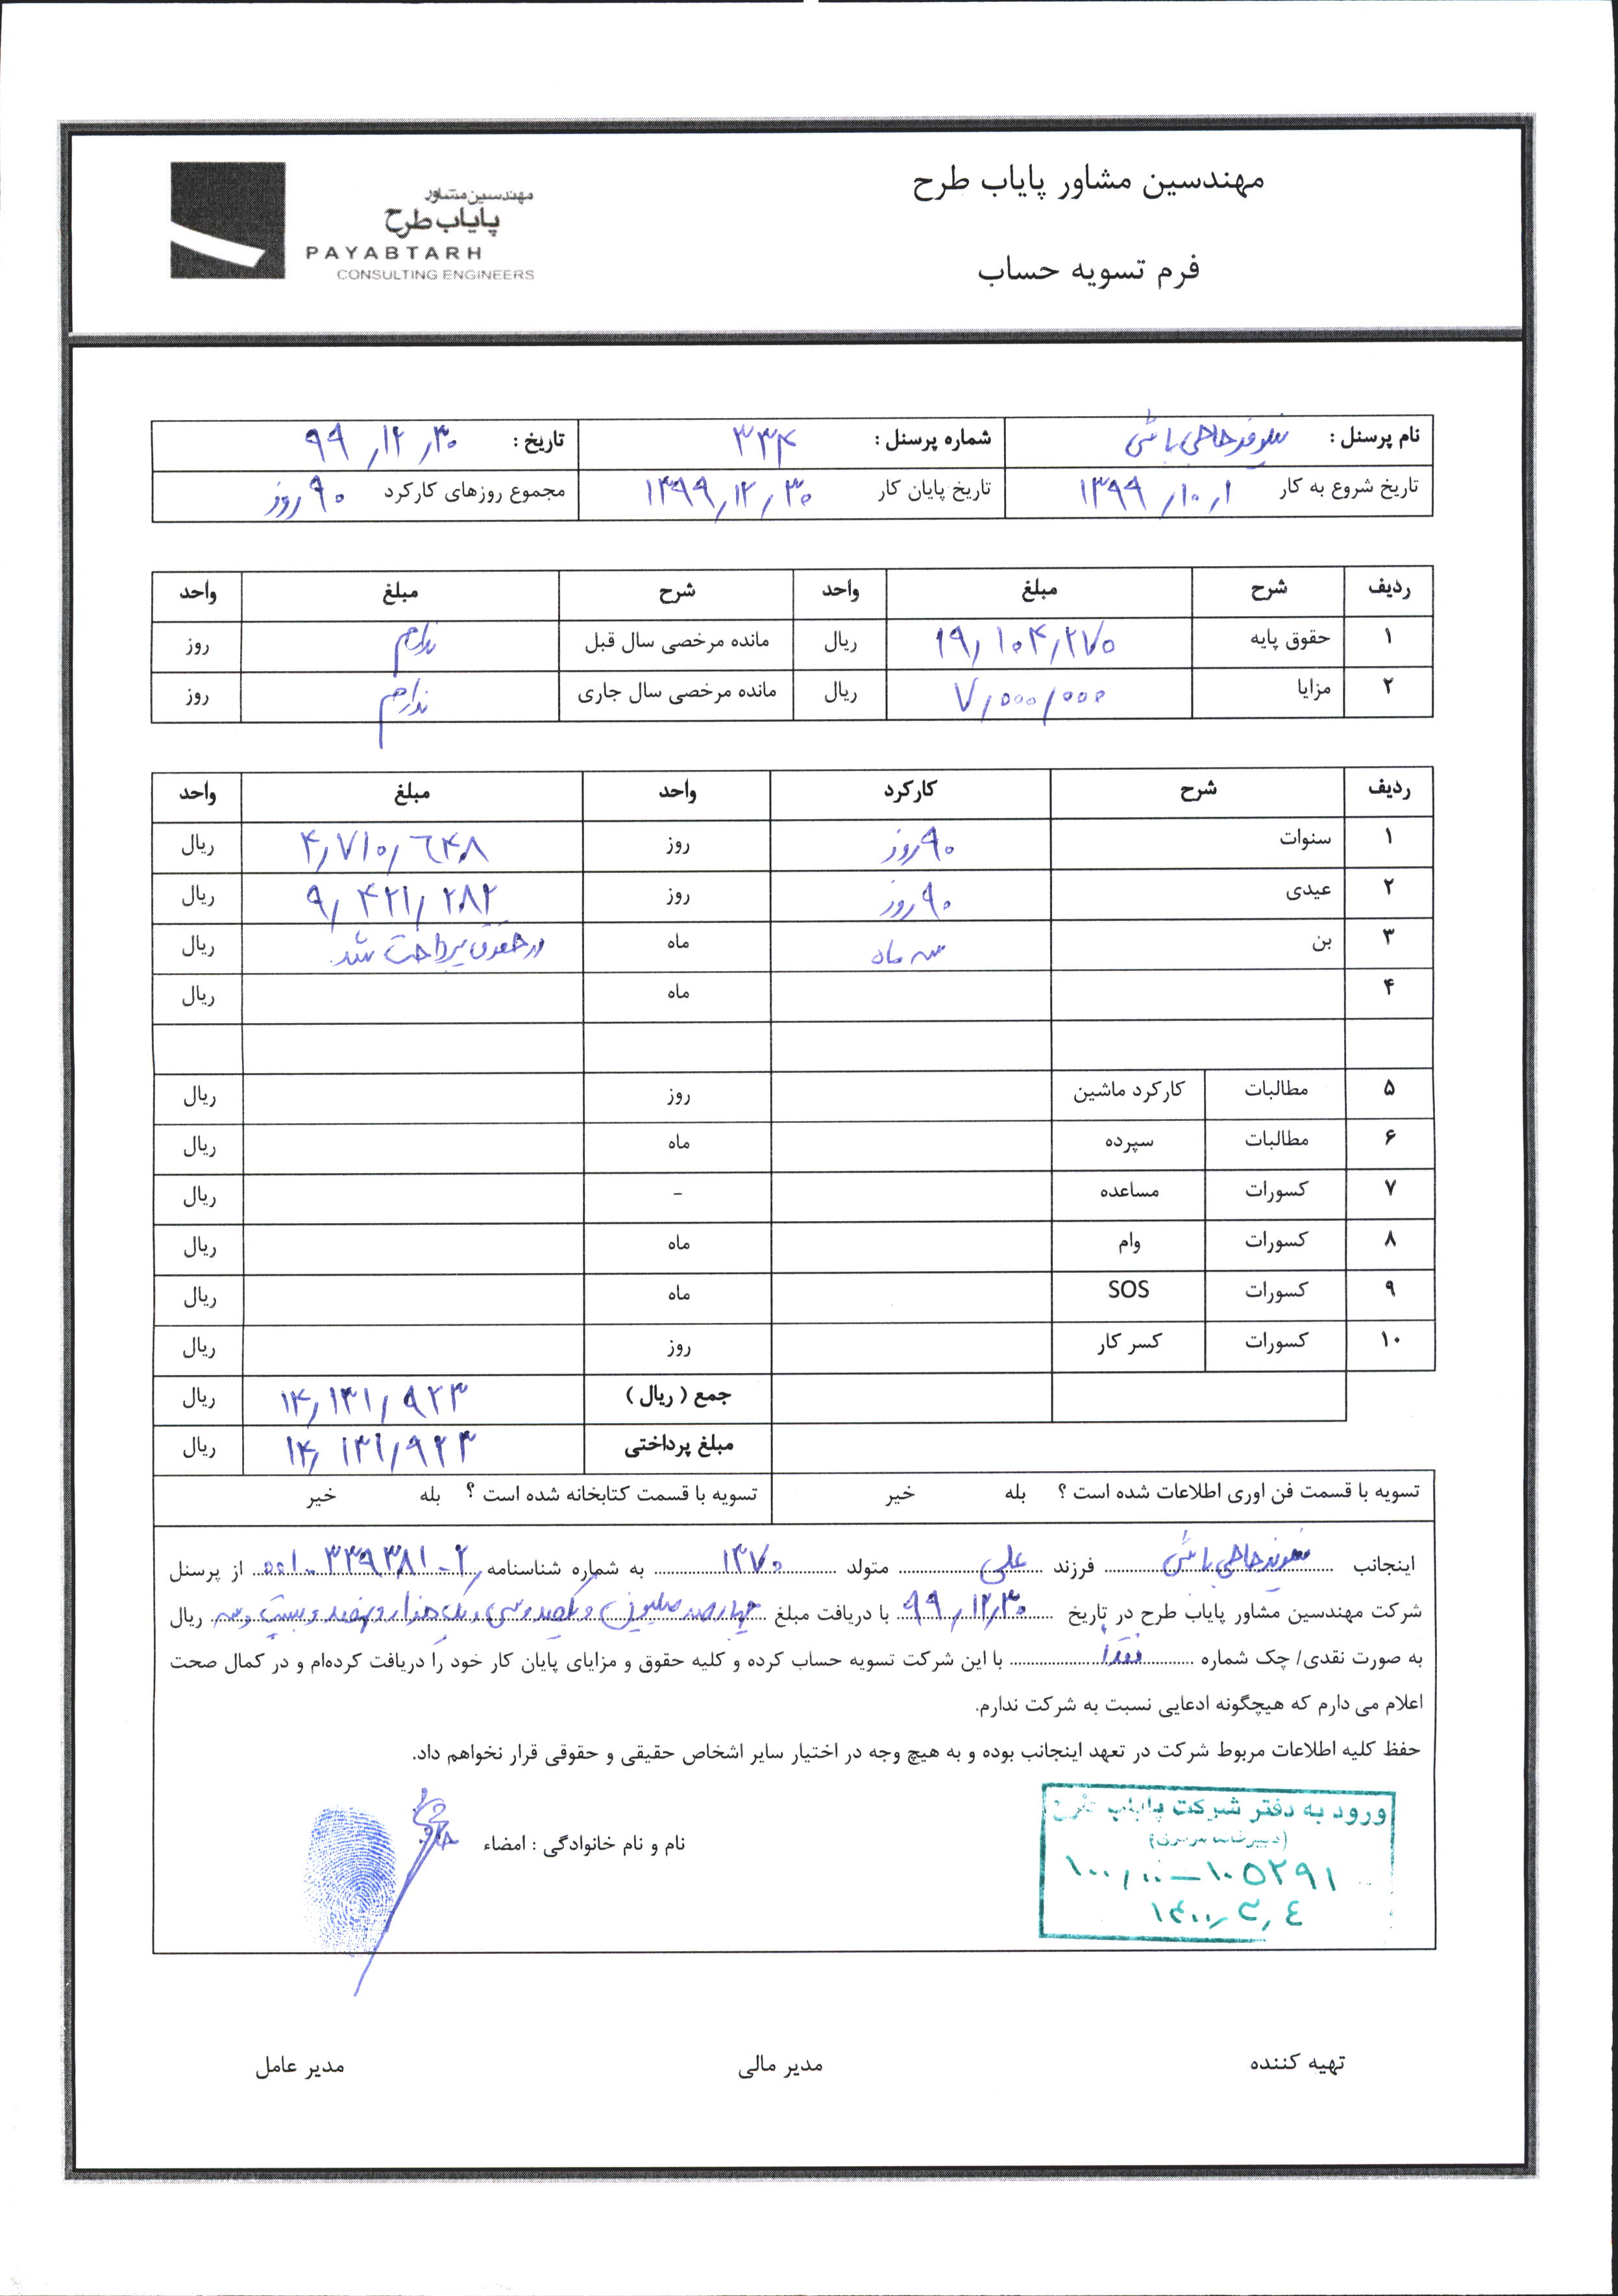 مهندسین مشاور پایاب طرح
فرم تسویه حساب
مهندسین مشاور
پایاب طرح
PAYABTARH
CONSULTING ENGINEERS
نام پرسنل : نیلوفر حاجی باشی شماره پرسنل : ۳۳۴ تاریخ : ۹۹/۱۲/۳۰
تاریخ شروع به کار ۱۳۹۹/۱۰/۱ تاریخ پایان کار ۱۳۹۹/۱۲/۳۰ مجموع روزهای کارکرد ۹۰ روز
ردیف شرح مبلغ واحد شرح مبلغ واحد
۱ حقوق پایه ۱۹/۱۰۴/۲۷۰ ریال مانده مرخصی سال قبل ندارم روز
۲ مزایا ۷/۰۰۰/۰۰۰ ریال مانده مرخصی سال جاری ندارم روز
ردیف شرح کارکرد واحد مبلغ واحد
۱ سنوات ۹۰ روز روز ۴/۷۱۰/۶۴۸ ریال
۲ عیدی ۹۰ روز روز ۹/۴۲۱/۲۸۲ ریال
۳ بن سه ماه ماه در حقوق پرداخت شد. ریال
۴ ماه ریال
۵ مطالبات کارکرد ماشین روز ریال
۶ مطالبات سپرده ماه ریال
۷ کسورات مساعده - ریال
۸ کسورات وام ماه ریال
۹ کسورات SOS ماه ریال
۱۰ کسورات کسر کار روز ریال
جمع ( ریال ) ۱۴/۱۳۱/۹۲۳ ریال
مبلغ پرداختی ۱۴/۱۳۱/۹۲۳ ریال
تسویه با قسمت فن اوری اطلاعات شده است ؟ بله خیر تسویه با قسمت کتابخانه شده است ؟ بله خیر
اینجانب حاجی باشی فرزند علی متولد ۱۳۷۰ به شماره شناسنامه ۰۰۱-۳۳۹۳۸۱-۲ از پرسنل
شرکت مهندسین مشاور پایاب طرح در تاریخ ۹۹/۱۲/۳۰ با دریافت مبلغ میلیون و یکصد و سی و یک هزار و نهصد و بیست و سه ریال
به صورت نقدی/ چک شماره نقدا با این شرکت تسویه حساب کرده و کلیه حقوق و مزایای پایان کار خود را دریافت کرده‌ام و در کمال صحت
اعلام می دارم که هیچگونه ادعایی نسبت به شرکت ندارم.
حفظ کلیه اطلاعات مربوط شرکت در تعهد اینجانب بوده و به هیچ وجه در اختیار سایر اشخاص حقیقی و حقوقی قرار نخواهم داد.
ورود به دفتر شرکت پایاب طرح
(دبیرخانه مرکزی)
۱۰۰/۰۰-۱۰۵۲۹۱
۱۴۰۰/۳/٤
نام و نام خانوادگی : امضاء
تهیه کننده مدیر مالی مدیر عامل